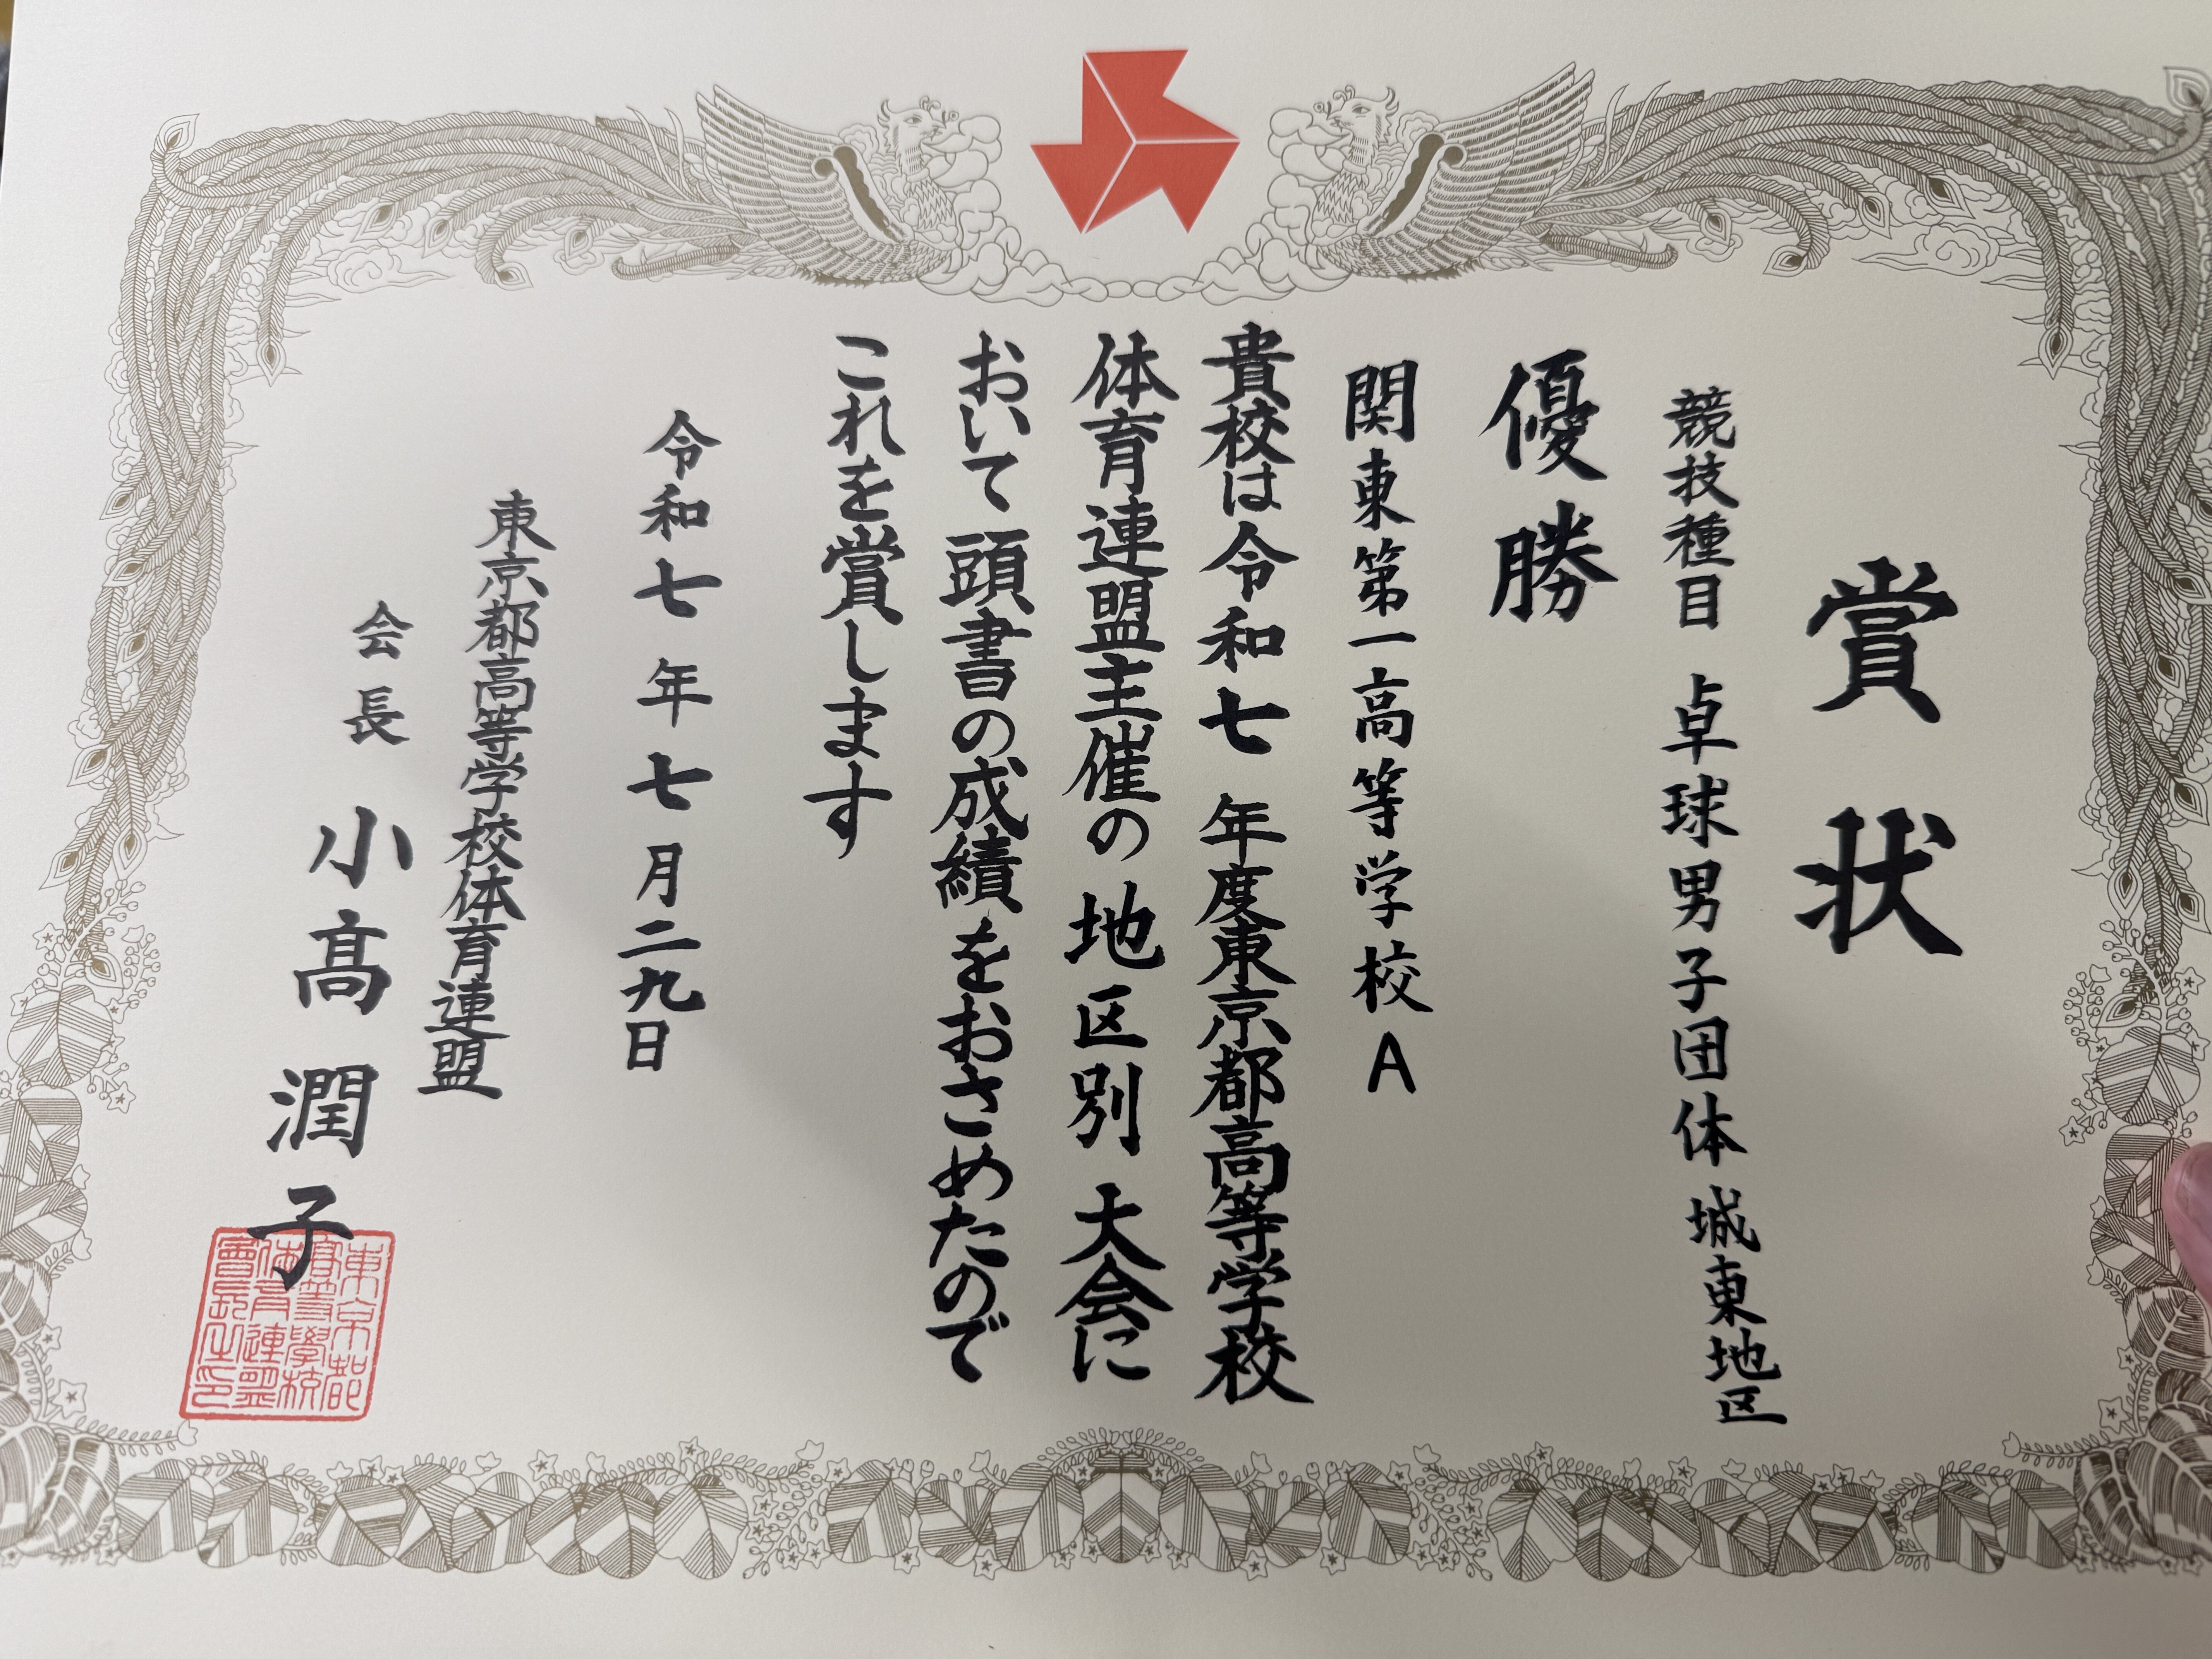 賞状
競技種目 卓球男子団体 城東地区
優勝
関東第一高等学校A
貴校は令和七年度東京都高等学校
体育連盟主催の地区別大会に
おいて頭書の成績をおさめたので
これを賞します
令和七年七月二九日
東京都高等学校体育連盟
会長 小髙潤子
東京都
高等學校
体育連盟
會長之印